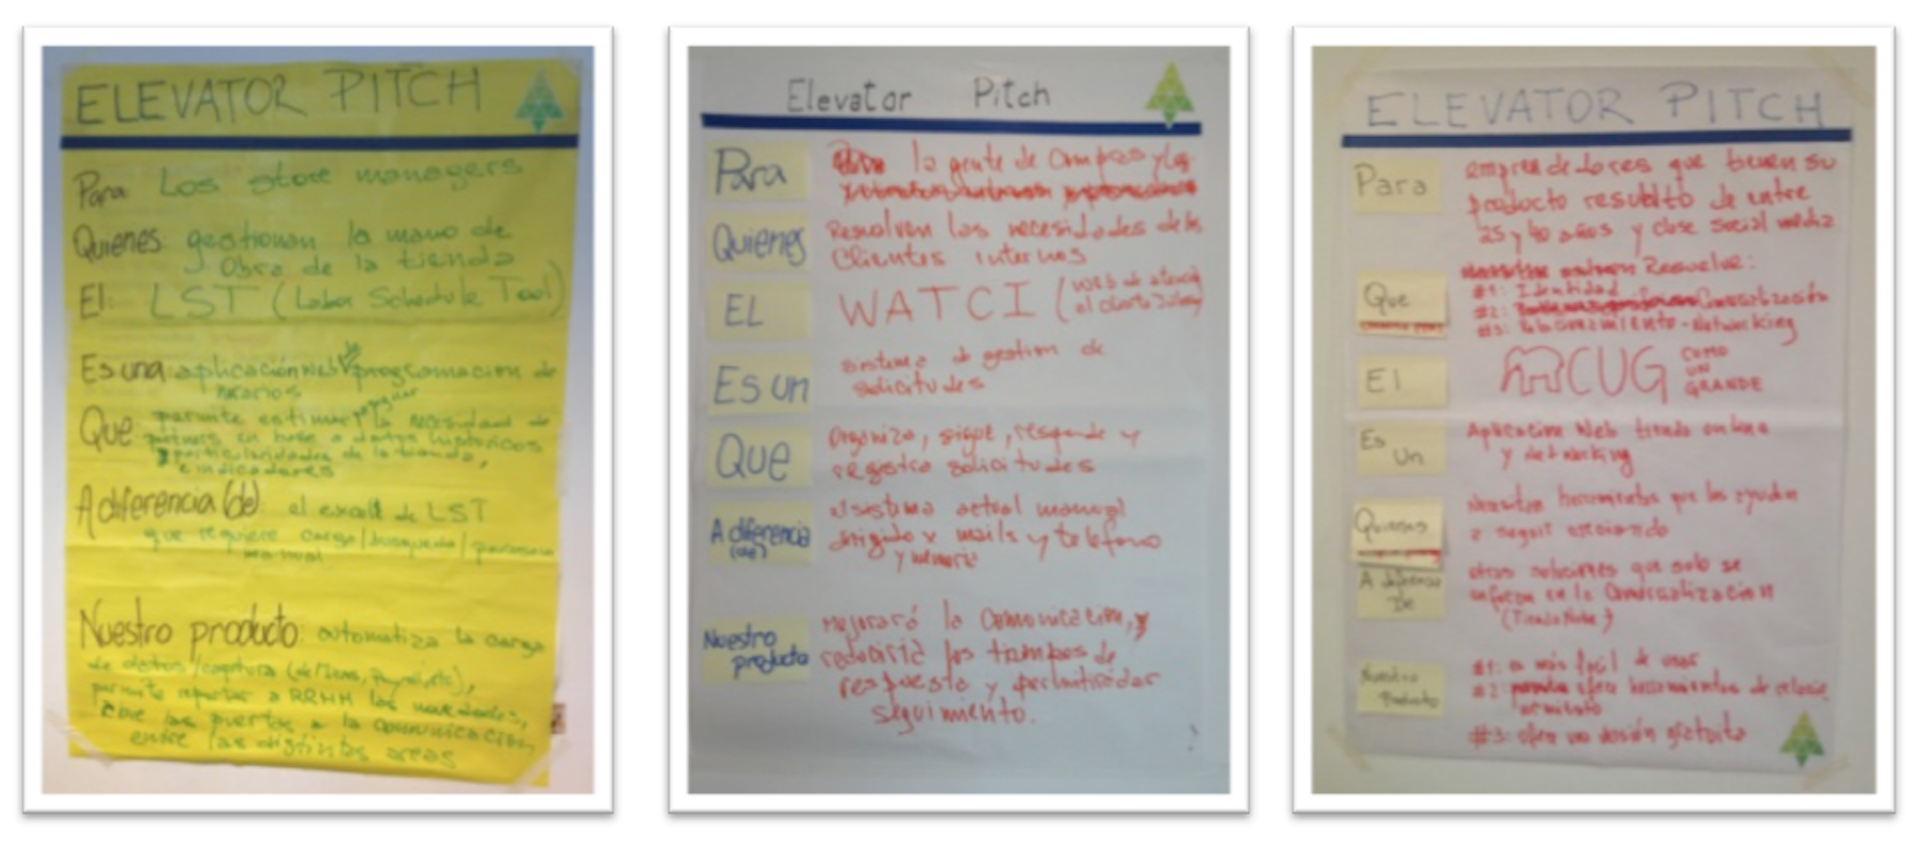 ELEVATOR PITCH
Para: Los store managers
Quienes: gestionan la mano de
Obra de la tienda
El: LST (Labor Schedule Tool)
Es una aplicación web de programacion de
horarios
Que permite estimar la necesidad de
partners en base a datos históricos
particularidades de la tienda,
e indicadores
A diferencia (de): el excel de LST
que requiere carga/busqueda/
manual
Nuestro producto: automatiza la carga
de datos/captura
permite reportar a RRHH las novedades,
abre las puertas a la comunicación
entre las distintas areas
Elevator Pitch
Para la gente de Compras y los
Quienes Resuelven las necesidades de los
Clientes internos
EL WATCI (web de atencion
al cliente interno)
Es un sistema de gestion de
solicitudes
Que Organiza, sigue, responde y
registra solicitudes
A diferencia (de) el sistema actual manual
dirigido x mails y telefono
y memoria
Nuestro producto Mejorará la comunicacion, y
reducirá los tiempos de
respuesta y permitirá dar
seguimiento.
ELEVATOR PITCH
Para emprendedores que tienen su
producto resuelto de entre
25 y 40 años y clase social media
Que Resuelve:
#1: Identidad
#2: Comercialización
#3: Relacionamiento - Networking
El CUG COMO
UN
GRANDE
Es Un Aplicacion Web tienda online
y networking
Quienes Necesitan herramientas que los ayuden
a seguir creciendo
A diferencia De otras soluciones que solo se
enfocan en la Comercialización
(TiendaNube)
Nuestro Producto #1: es más fácil de usar
#2: ofrece herramientas de relacio
namiento
#3: ofrece una versión gratuita